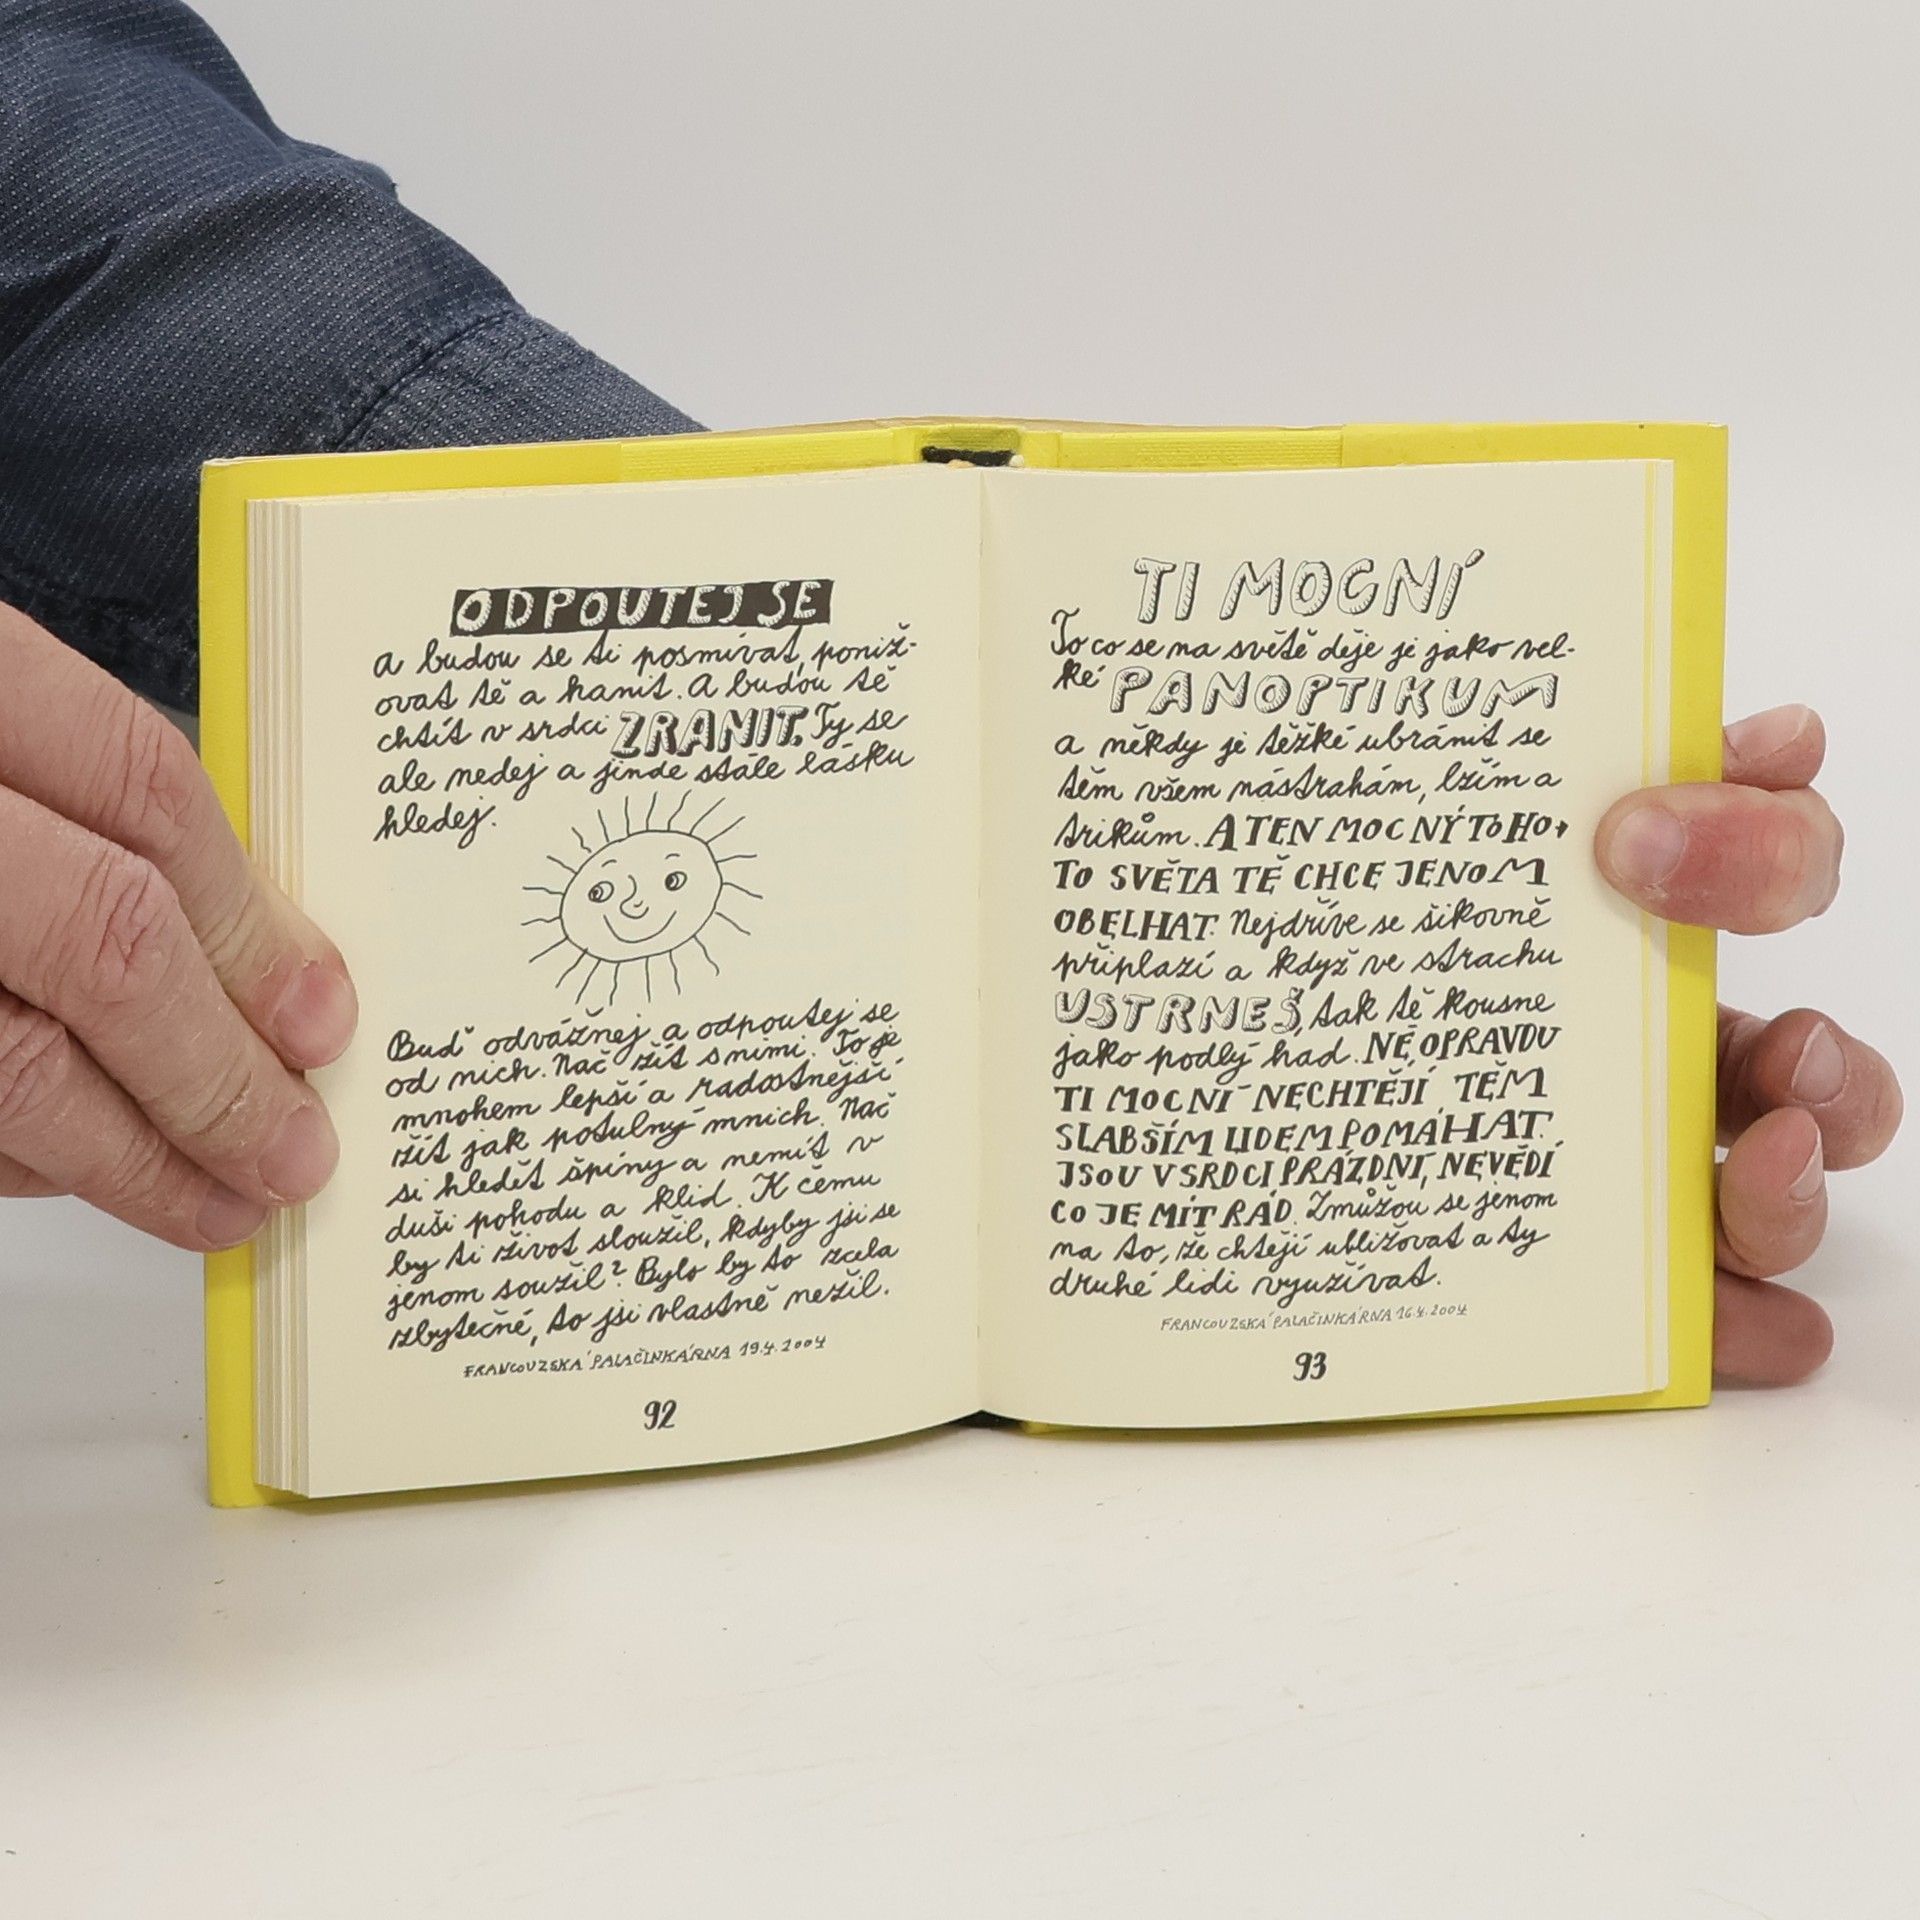 ODPOUTEJ SE
a budou se ti posmívat, poniž-
ovat tě a hanit. A budou tě
chtít v srdci ZRANIT. Ty se
ale nedej a jinde stále lásku
hledej.
Buď odvážnej a odpoutej se
od nich. Nač žít s nimi. To je
mnohem lepší a radostnější
žít jak potulný mnich. Nač
si hledět špíny a nemít v
duši pohodu a klid. K čemu
by ti život sloužil, kdyby jsi se
jenom soužil? Bylo by to zcela
zbytečné, to jsi vlastně nežil.
FRANCOUZSKÁ PALAČINKÁRNA 19.4.2004
92
TI MOCNÍ
To co se na světě děje je jako vel-
ké PANOPTIKUM
a někdy je těžké ubránit se
těm všem nástrahám, lžím a
trikům. A TEN MOCNÝ TOHO-
TO SVĚTA TĚ CHCE JENOM
OBELHAT. Nejdříve se šikovně
připlazí a když ve strachu
USTRNEŠ, tak tě kousne
jako podlý had. NE, OPRAVDU
TI MOCNÍ NECHTĚJÍ TĚM
SLABŠÍM LIDEM POMÁHAT.
JSOU V SRDCI PRÁZDNÍ, NEVĚDÍ
CO JE MÍT RÁD. Zmůžou se jenom
na to, že chtějí ubližovat a ty
druhé lidi využívat.
FRANCOUZSKÁ PALAČINKÁRNA 16.4.2004
93